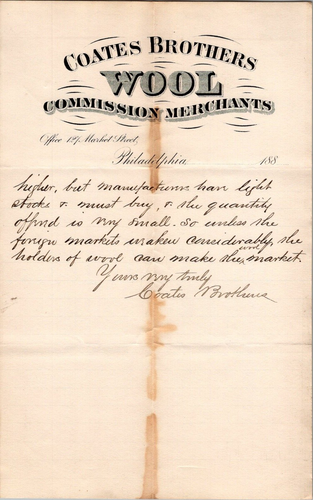 COATES BROTHERS
WOOL
COMMISSION MERCHANTS
Office 127 Market Street,
Philadelphia, 188
higher, but manufacturers have light
stocks & must buy, & the quantity
offered is very small. So unless the
foreign markets weaken considerably, the
holders of wool can make their own market.
Yours very truly
Coates Brothers